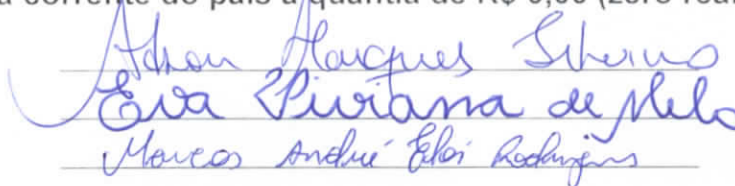 corrente do país a quantia de R$ 0,00 (zero rea
Marques
Eva Viviana de Melo
Marcos André Elói Rodrigues